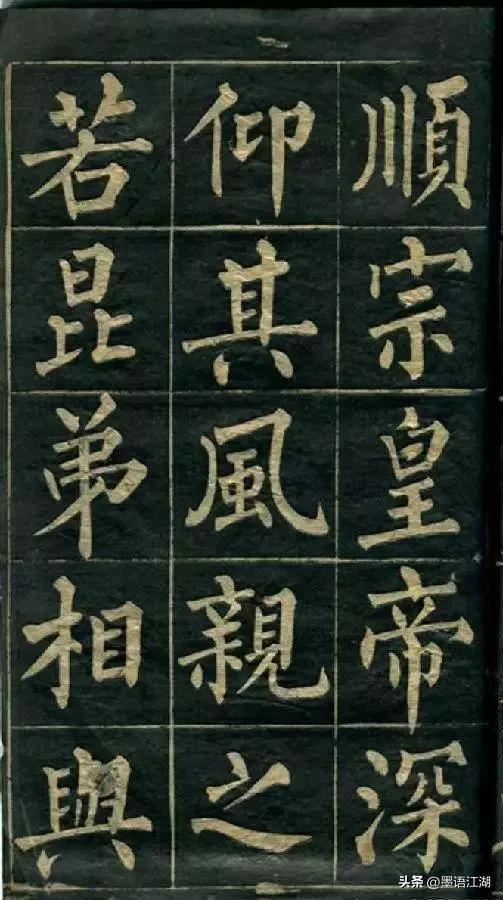 順宗皇帝深
仰其風親之
若昆弟相與
头条 @墨语江湖